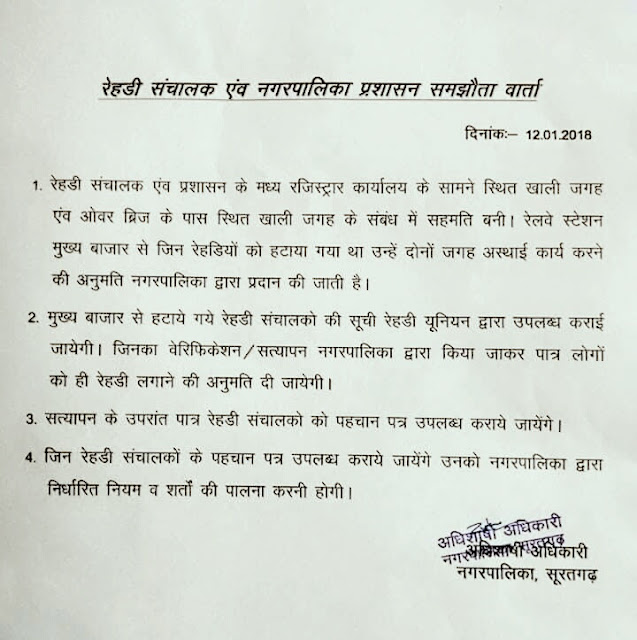 रेहडी संचालक एंव नगरपालिका प्रशासन समझौता वार्ता
दिनांकः– 12.01.2018
1. रेहडी संचालक एंव प्रशासन के मध्य रजिस्ट्रार कार्यालय के सामने स्थित खाली जगह
एंव ओवर ब्रिज के पास स्थित खाली जगह के संबंध में सहमति बनी। रेलवे स्टेशन
मुख्य बाजार से जिन रेहडियों को हटाया गया था उन्हें दोनों जगह अस्थाई कार्य करने
की अनुमति नगरपालिका द्वारा प्रदान की जाती है।
2. मुख्य बाजार से हटाये गये रेहडी संचालको की सूची रेहडी यूनियन द्वारा उपलब्ध कराई
जायेगी। जिनका वेरिफिकेशन/सत्यापन नगरपालिका द्वारा किया जाकर पात्र लोगों
को ही रेहडी लगाने की अनुमति दी जायेगी।
3. सत्यापन के उपरांत पात्र रेहडी संचालको को पहचान पत्र उपलब्ध कराये जायेंगे।
4. जिन रेहडी संचालकों के पहचान पत्र उपलब्ध कराये जायेंगे उनको नगरपालिका द्वारा
निर्धारित नियम व शर्तों की पालना करनी होगी।
अधिशाषी अधिकारी
नगरपालिका सूरतगढ़
अधिशाषी अधिकारी
नगरपालिका, सूरतगढ़